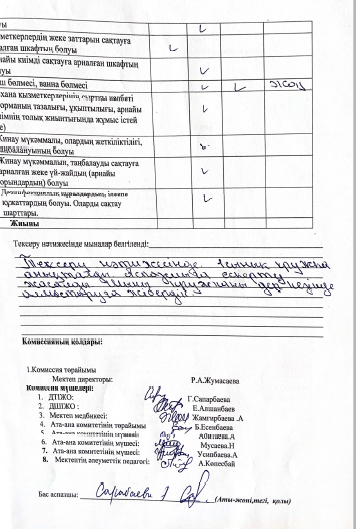 меткерлердің жеке заттарын сақтауға
алған шкафтың болуы
айы киімді сақтауға арналған шкафтың
уы
ш бөлмесі, ванна бөлмесі жоқ
хана қызметкерлерінің сыртқы келбеті
орманың тазалығы, ұқыптылығы, арнайы
імнің толық жиынтығында жұмыс істей
е)
Жинау мүкәммалы, олардың жеткіліктілігі,
аңбалануының болуы
Жинау мүкәммалын, таңбалауды сақтауға
арналған жеке үй-жайдың (арнайы
орындардың) болуы
құжаттардың болуы. Оларды сақтау
шарттары.
Жиыны
Тексеру нәтижесінде мыналар белгіленді:
Тексеру нәтижесінде. 1 сынық кружка
анықталды. Аспазшыға ескерту
жасалды.
алмастыруға жіберді.
Комиссияның қолдары:
1.Комиссия төрайымы
Мектеп директоры: Р.А.Жумасаева
Комиссия мүшелері:
1. ДТІЖО: Г.Сапарбаева
2. ДШЖО : Е.Апшанбаев
3. Мектеп медбикесі: Жамгирбаева .А
4. Ата-ана комитетінің төрайымы Б.Есенбаева
5. Ата-ана комитетінің мүшесі
6. Ата-ана комитетінің мүшесі: Мусаева.Н
7. Ата-ана комитетінің мүшесі: Усипбаева.А
8. Мектептің әлеуметтік педагогі: А.Көпесбай
Бас аспазшы: (Аты-жөні,тегі, қолы)